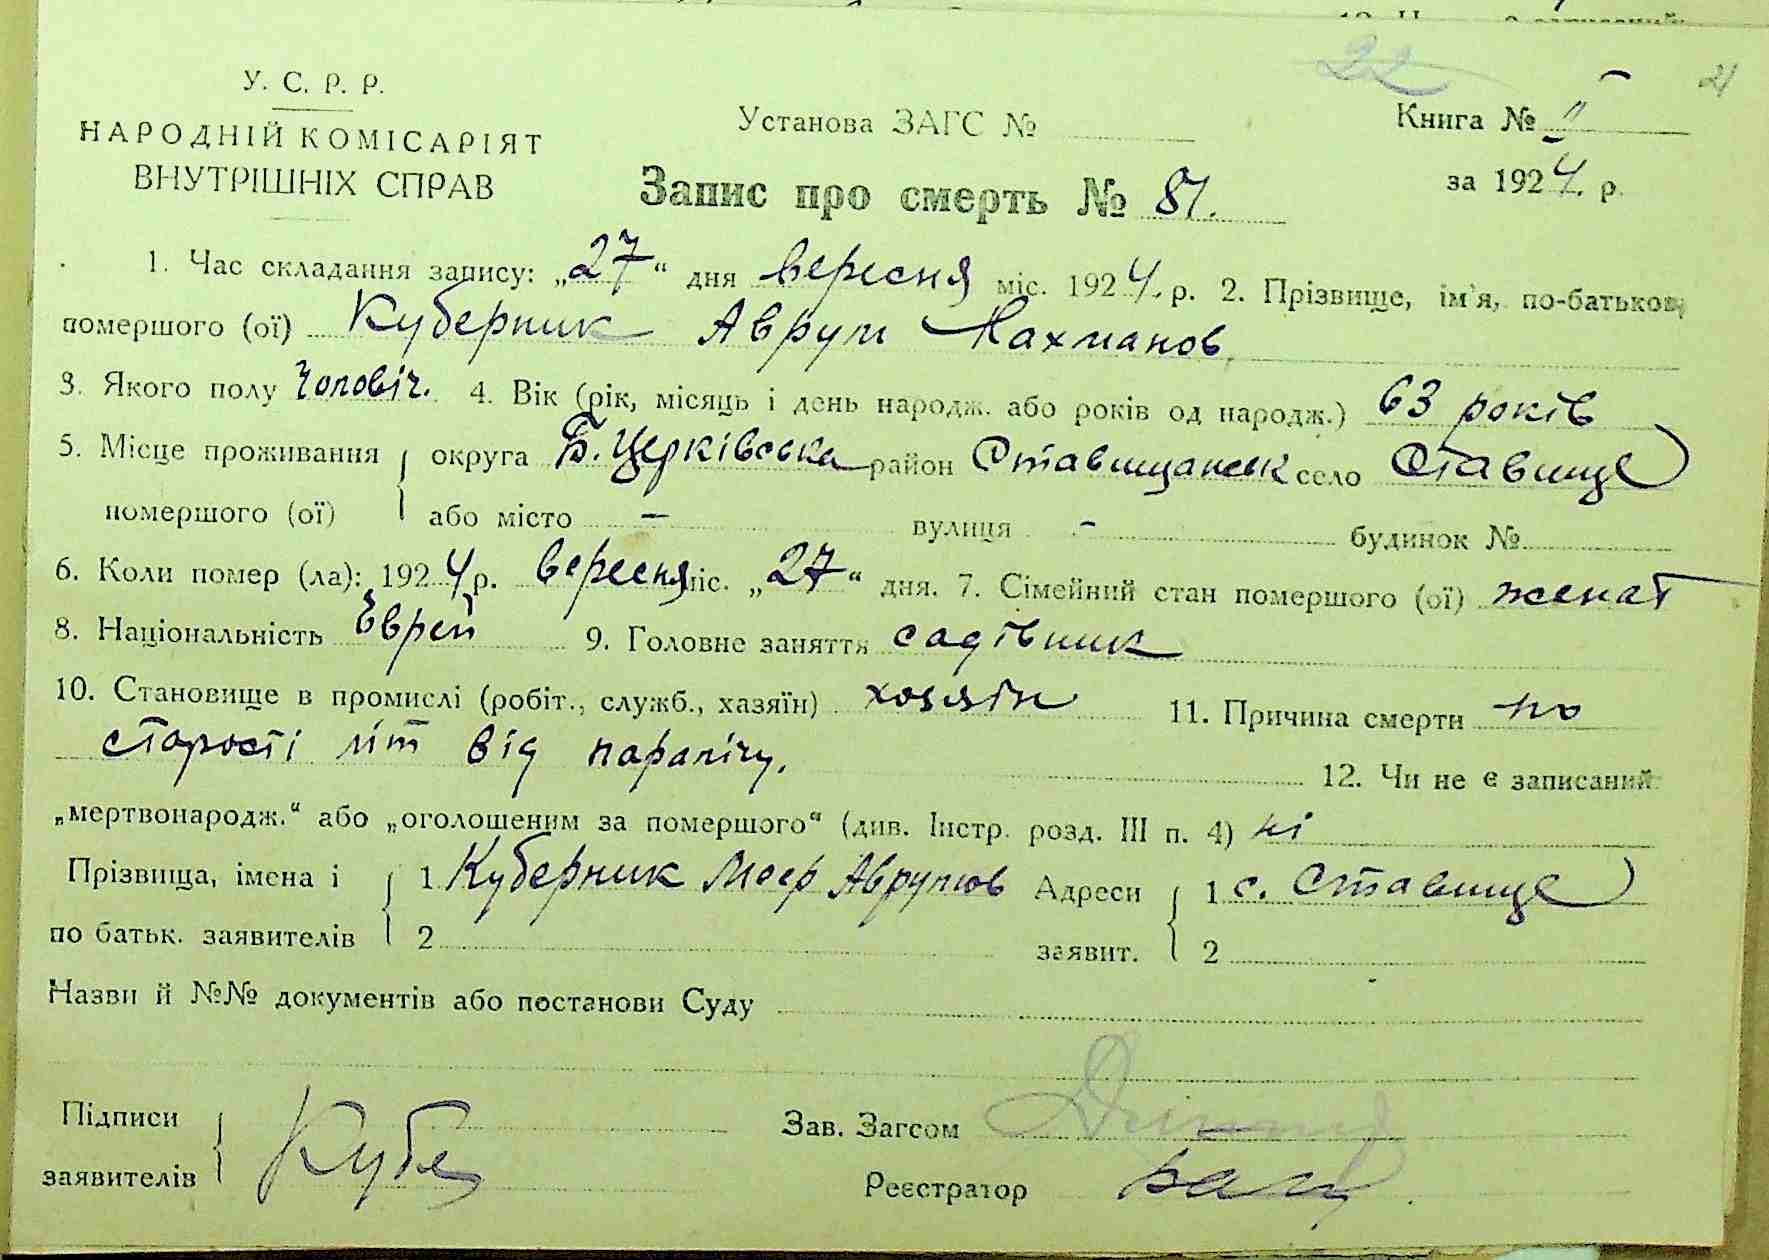 22 21
У. С. Р. Р.
НАРОДНІЙ КОМІСАРІЯТ
ВНУТРІШНІХ СПРАВ
Установа ЗАГС №
Книга № II
за 1924 р.
Запис про смерть № 81.
1. Час складання запису: „27“ дня вересня міс. 1924 р. 2. Прізвище, ім'я, по-батькові
помершого (ої) Куберник Аврум Нахманов
3. Якого полу чоловіч. 4. Вік (рік, місяць і день народж. або років од народж.) 63 років
5. Місце проживання округа Б. Церківська район Ставищанськ село Ставище
помершого (ої) або місто – вулиця - будинок №
6. Коли помер (ла): 1924 р. вересня міс. „27“ дня. 7. Сімейний стан помершого (ої) женат
8. Національність Еврей 9. Головне заняття садівник
10. Становище в промислі (робіт., служб., хазяїн) хозяїн 11. Причина смерти по
старості літ від паралічу.
12. Чи не є записаний
„мертвонародж.“ або „оголошеним за помершого“ (див. Інстр. розд. III п. 4) ні
Прізвища, імена і 1 Куберник Моер Аврумов Адреси 1 с. Ставище
по батьк. заявителів 2 заявит. 2
Назви й №№ документів або постанови Суду
Підписи
заявителів Кубе
Зав. Загсом
Реєстратор